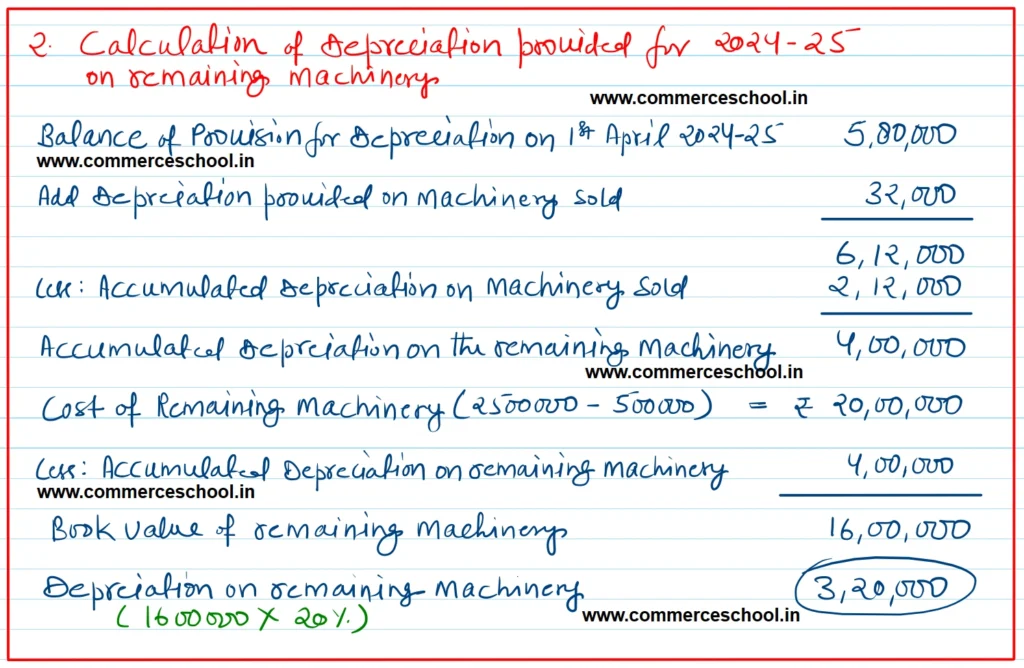 2. Calculation of Depreciation provided for 2024-25
on remaining machinery
www.commerceschool.in
Balance of Provision for Depreciation on 1st April 2024-25 5,80,000
www.commerceschool.in
Add Depreciation provided on Machinery sold 32,000
6,12,000
Less: Accumulated Depreciation on Machinery Sold 2,12,000
Accumulated Depreciation on the remaining Machinery 4,00,000
www.commerceschool.in
Cost of Remaining Machinery (2500000 - 500000) = ₹ 20,00,000
Less: Accumulated Depreciation on remaining machinery 4,00,000
www.commerceschool.in
Book value of remaining machinery 16,00,000
Depreciation on remaining machinery 3,20,000
(1600000 x 20%.)
www.commerceschool.in